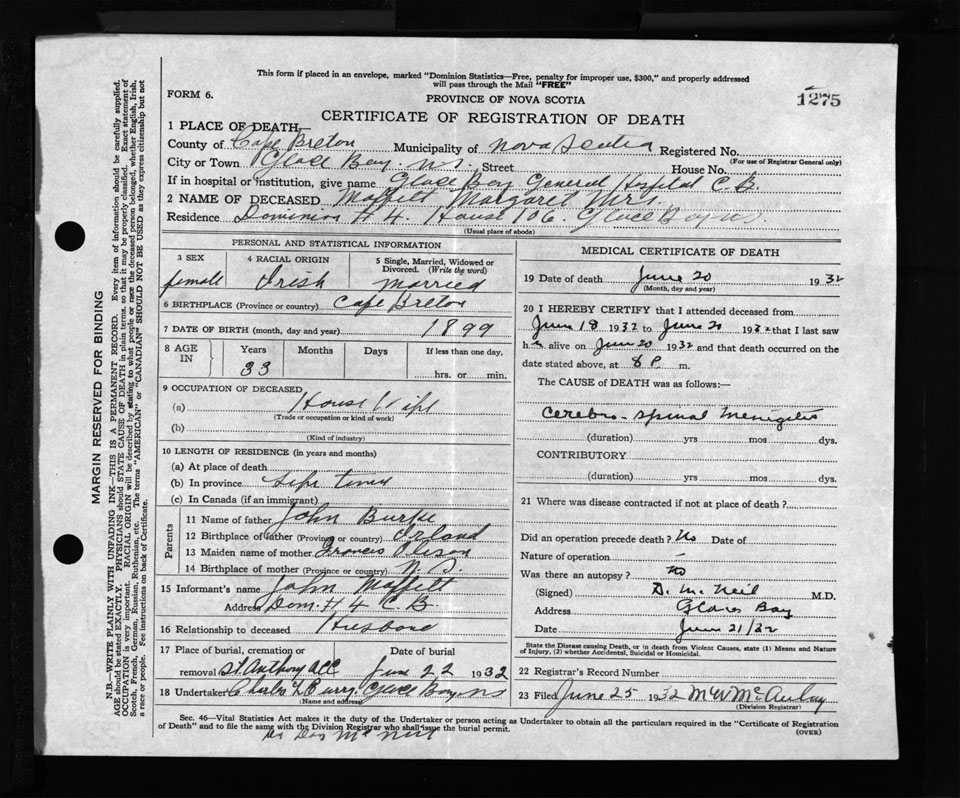 This form if placed in an envelope, marked "Dominion Statistics—Free, penalty for improper use, $300," and properly addressed
will pass through the Mail "FREE"
FORM 6.
PROVINCE OF NOVA SCOTIA
1275
CERTIFICATE OF REGISTRATION OF DEATH
1 PLACE OF DEATH—
County of Cape Breton Municipality of Nova Scotia Registered No.
(For use of Registrar General only)
City or Town Glace Bay. N.S. Street House No.
If in hospital or institution, give name Glace Bay General Hospital C.B.
2 NAME OF DECEASED Moffett Margaret Mrs.
Residence Dominion # 4. House 106. Glace Bay N.S.
(Usual place of abode)
PERSONAL AND STATISTICAL INFORMATION
3 SEX
female
4 RACIAL ORIGIN
Irish
5 Single, Married, Widowed or
Divorced. (Write the word)
Married
6 BIRTHPLACE (Province or country) Cape Breton
7 DATE OF BIRTH (month, day and year) 1899
8 AGE
IN
Years
33
Months
Days
If less than one day,
hrs. or min.
9 OCCUPATION OF DECEASED
(a) House Wife
(Trade or occupation or kind of work)
(b)
(Kind of industry)
10 LENGTH OF RESIDENCE (in years and months)
(a) At place of death
(b) In province Life time
(c) In Canada (if an immigrant)
Parents
11 Name of father John Burke
12 Birthplace of father (Province or country)
13 Maiden name of mother Francis
14 Birthplace of mother (Province or country) N.S.
15 Informant's name John Moffett
Address Dom. # 4 C.B.
16 Relationship to deceased Husband
17 Place of burial, cremation or
removal St. Anthony
Date of burial
June 22 1932
18 Undertaker Charles Glace Bay, NS
(Name and address)
MEDICAL CERTIFICATE OF DEATH
19 Date of death June 20 1932
(Month, day and year)
20 I HEREBY CERTIFY that I attended deceased from
June 18 1932 to June 20 1932 that I last saw
h alive on June 20 1932 and that death occurred on the
date stated above, at 8 P. m.
The CAUSE of DEATH was as follows:
Cerebro-spinal Menigitis
(duration) yrs mos dys.
CONTRIBUTORY
(duration) yrs mos dys.
21 Where was disease contracted if not at place of death?
Did an operation precede death? No Date of
Nature of operation –
Was there an autopsy? no
(Signed) D. McNeil M.D.
Address Glace Bay
Date June 21/32
State the Disease causing Death, or in death from Violent Causes, state (1) Means and Nature
of Injury, (2) whether Accidental, Suicidal or Homicidal.
22 Registrar's Record Number
23 Filed June 25 1932 McAulay
(Division Registrar)
Sec. 46—Vital Statistics Act makes it the duty of the Undertaker or person acting as Undertaker to obtain all the particulars required in the "Certificate of Registration
of Death" and to file the same with the Division Registrar who shall issue the burial permit.
(OVER)
Dr Dan McNeil
MARGIN RESERVED FOR BINDING
N.B.—WRITE PLAINLY WITH UNFADING INK—THIS IS A PERMANENT RECORD. Every item of information should be carefully supplied.
AGE should be stated EXACTLY. PHYSICIANS should STATE CAUSE OF DEATH in plain terms, so that it may be properly classified. Exact statement of
OCCUPATION is very important. RACIAL ORIGIN will be described by stating to what people or race the deceased person belonged, whether English, Irish,
Scotch, French, German, Russian, Ruthenian, etc. The terms "AMERICAN" or "CANADIAN" SHOULD NOT BE USED as they express citizenship but not
a race or people. See instructions on back of Certificate.